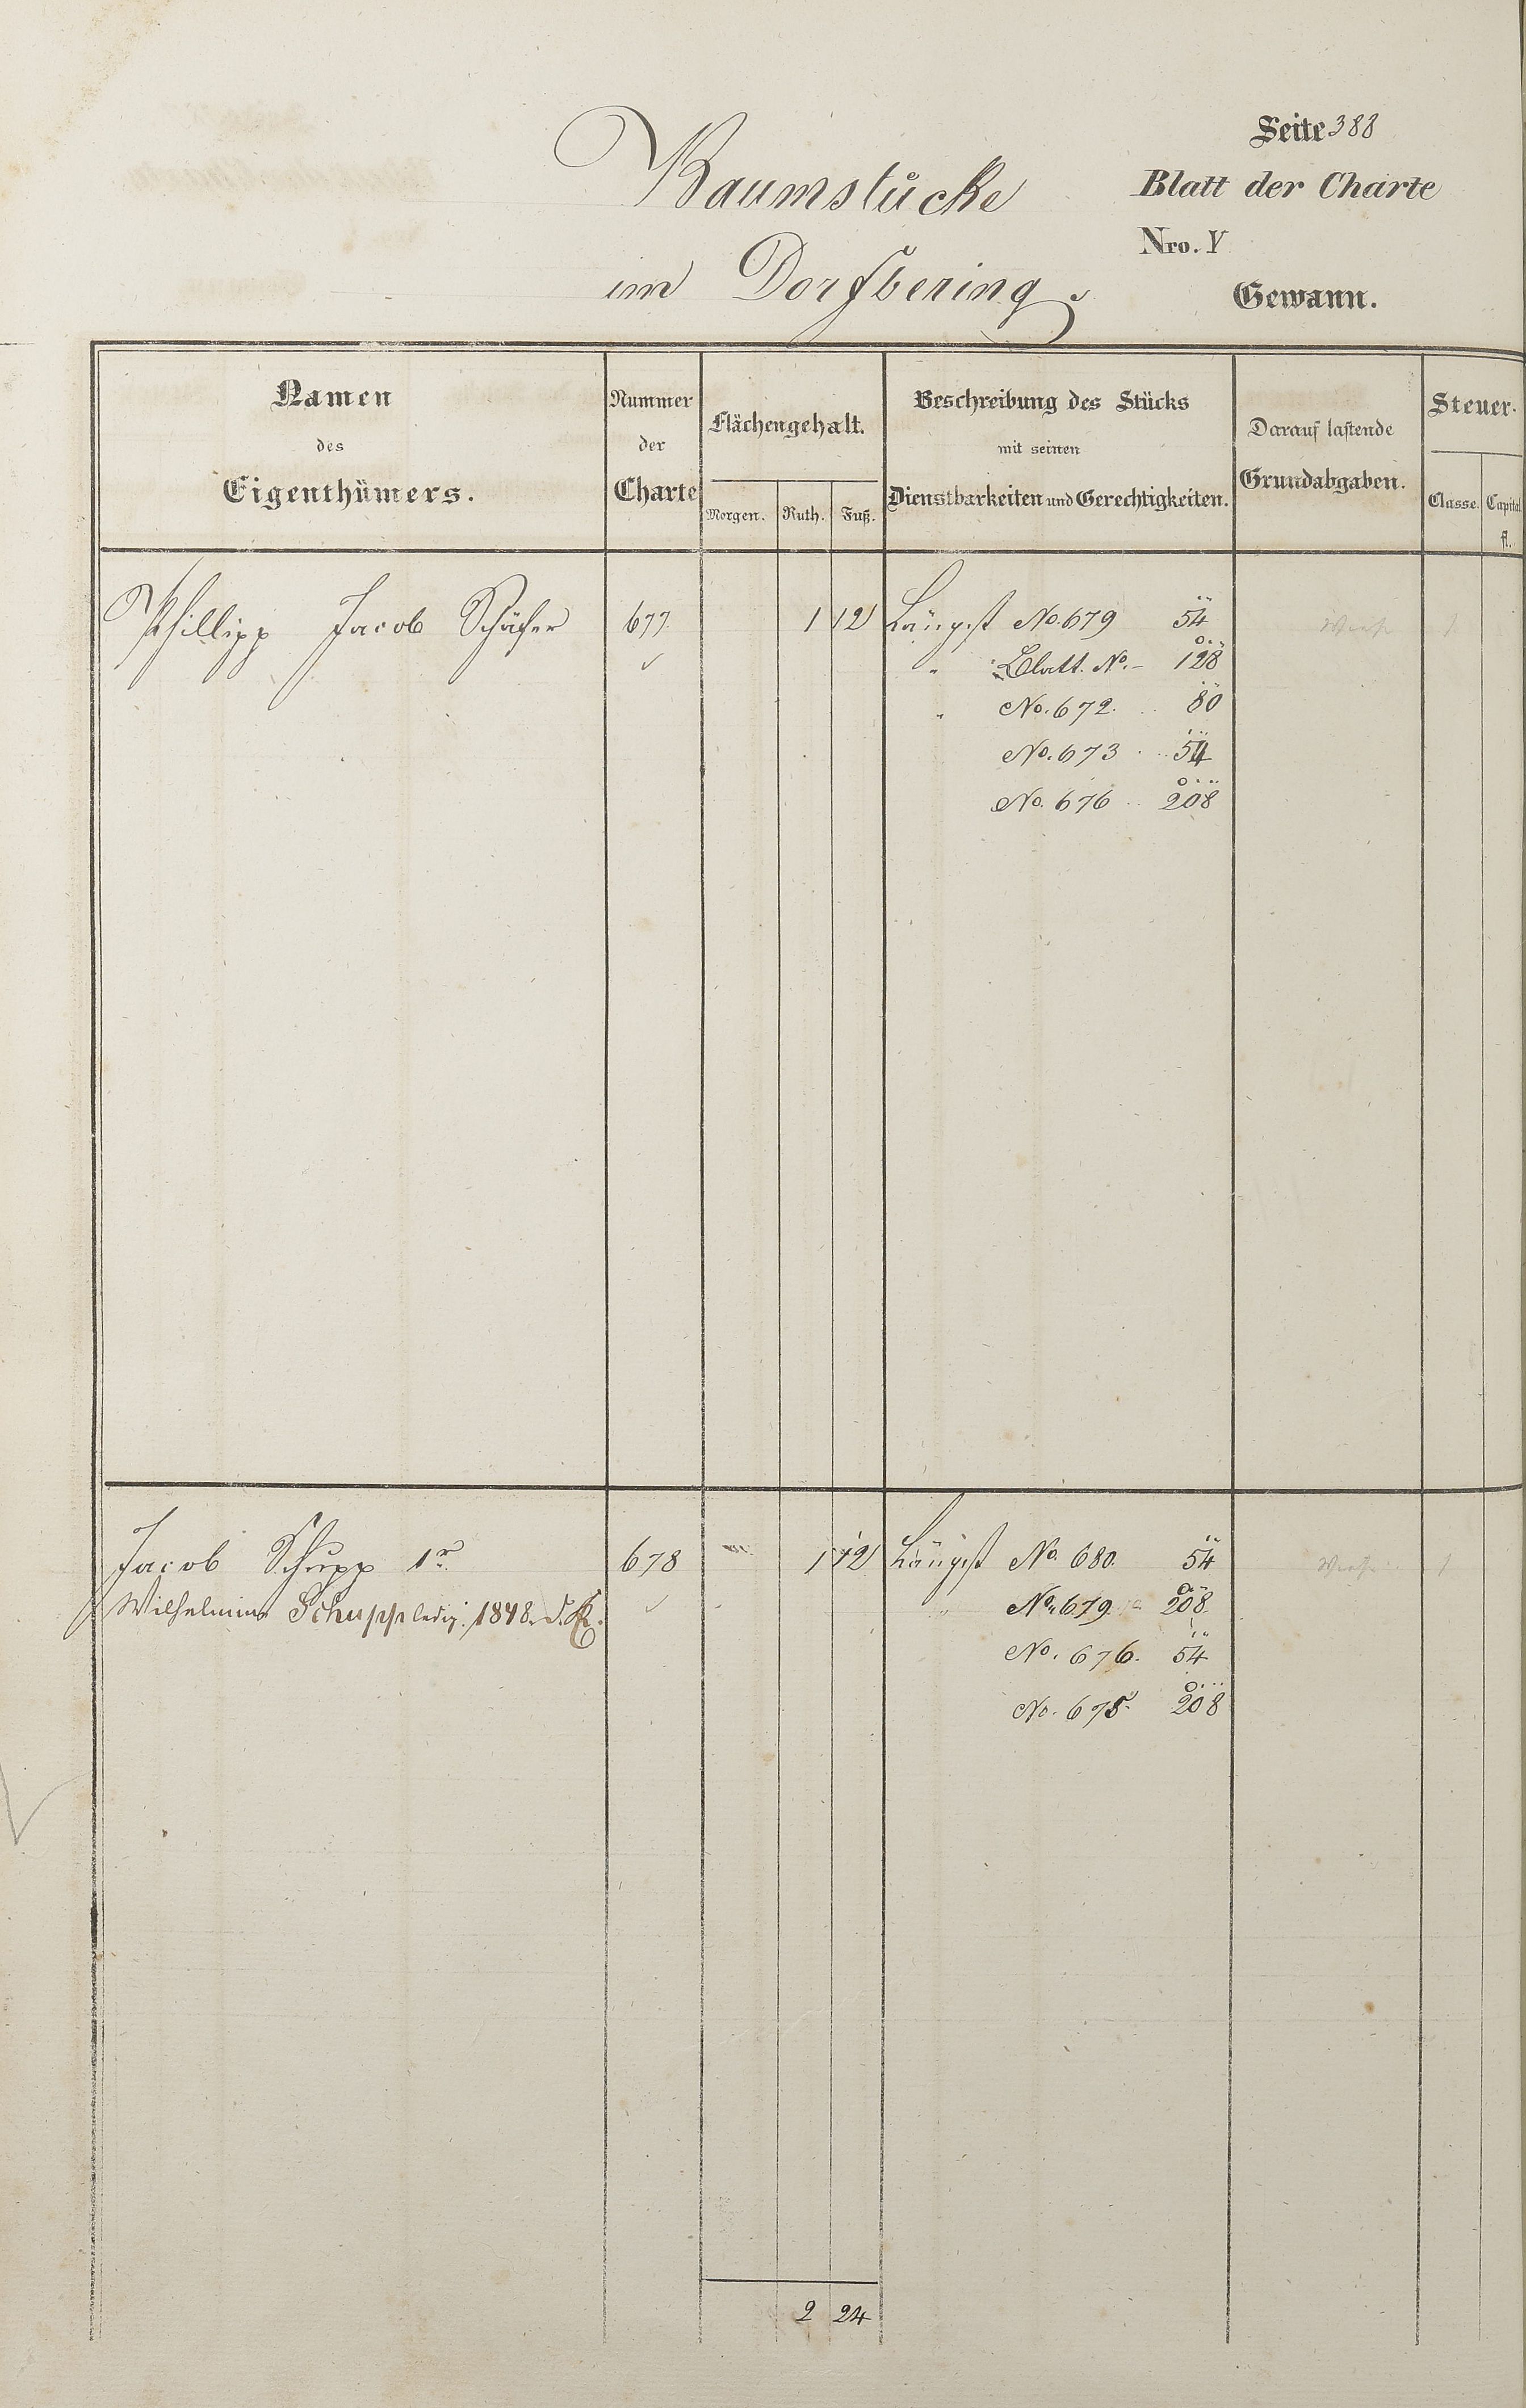 Seite 388
Baumstücke
Blatt der Charte
Nro. V
im Dorfbering.
Gewann.
Namen
des
Eigenthümers.
Nummer
der
Charte
Flächengehalt.
Morgen. Ruth. Fuß.
Beschreibung des Stücks
mit seinen
Dienstbarkeiten und Gerechtigkeiten.
Darauf lastende
Grundabgaben.
Steuer-
Classe. Capital
fl.
Phillipp Jacob Schäfer 677 1 12 Längst No. 679 54
" Blatt. No. – 128
" No. 672. 80
No. 673 54
No. 676 208
Jacob Schupp 1r 678 1 12 Längst No. 680. 54
Wilhelmine Schupp ledig. 1848. " No. 679 208
No. 676. 54
No. 675. 208
2 24